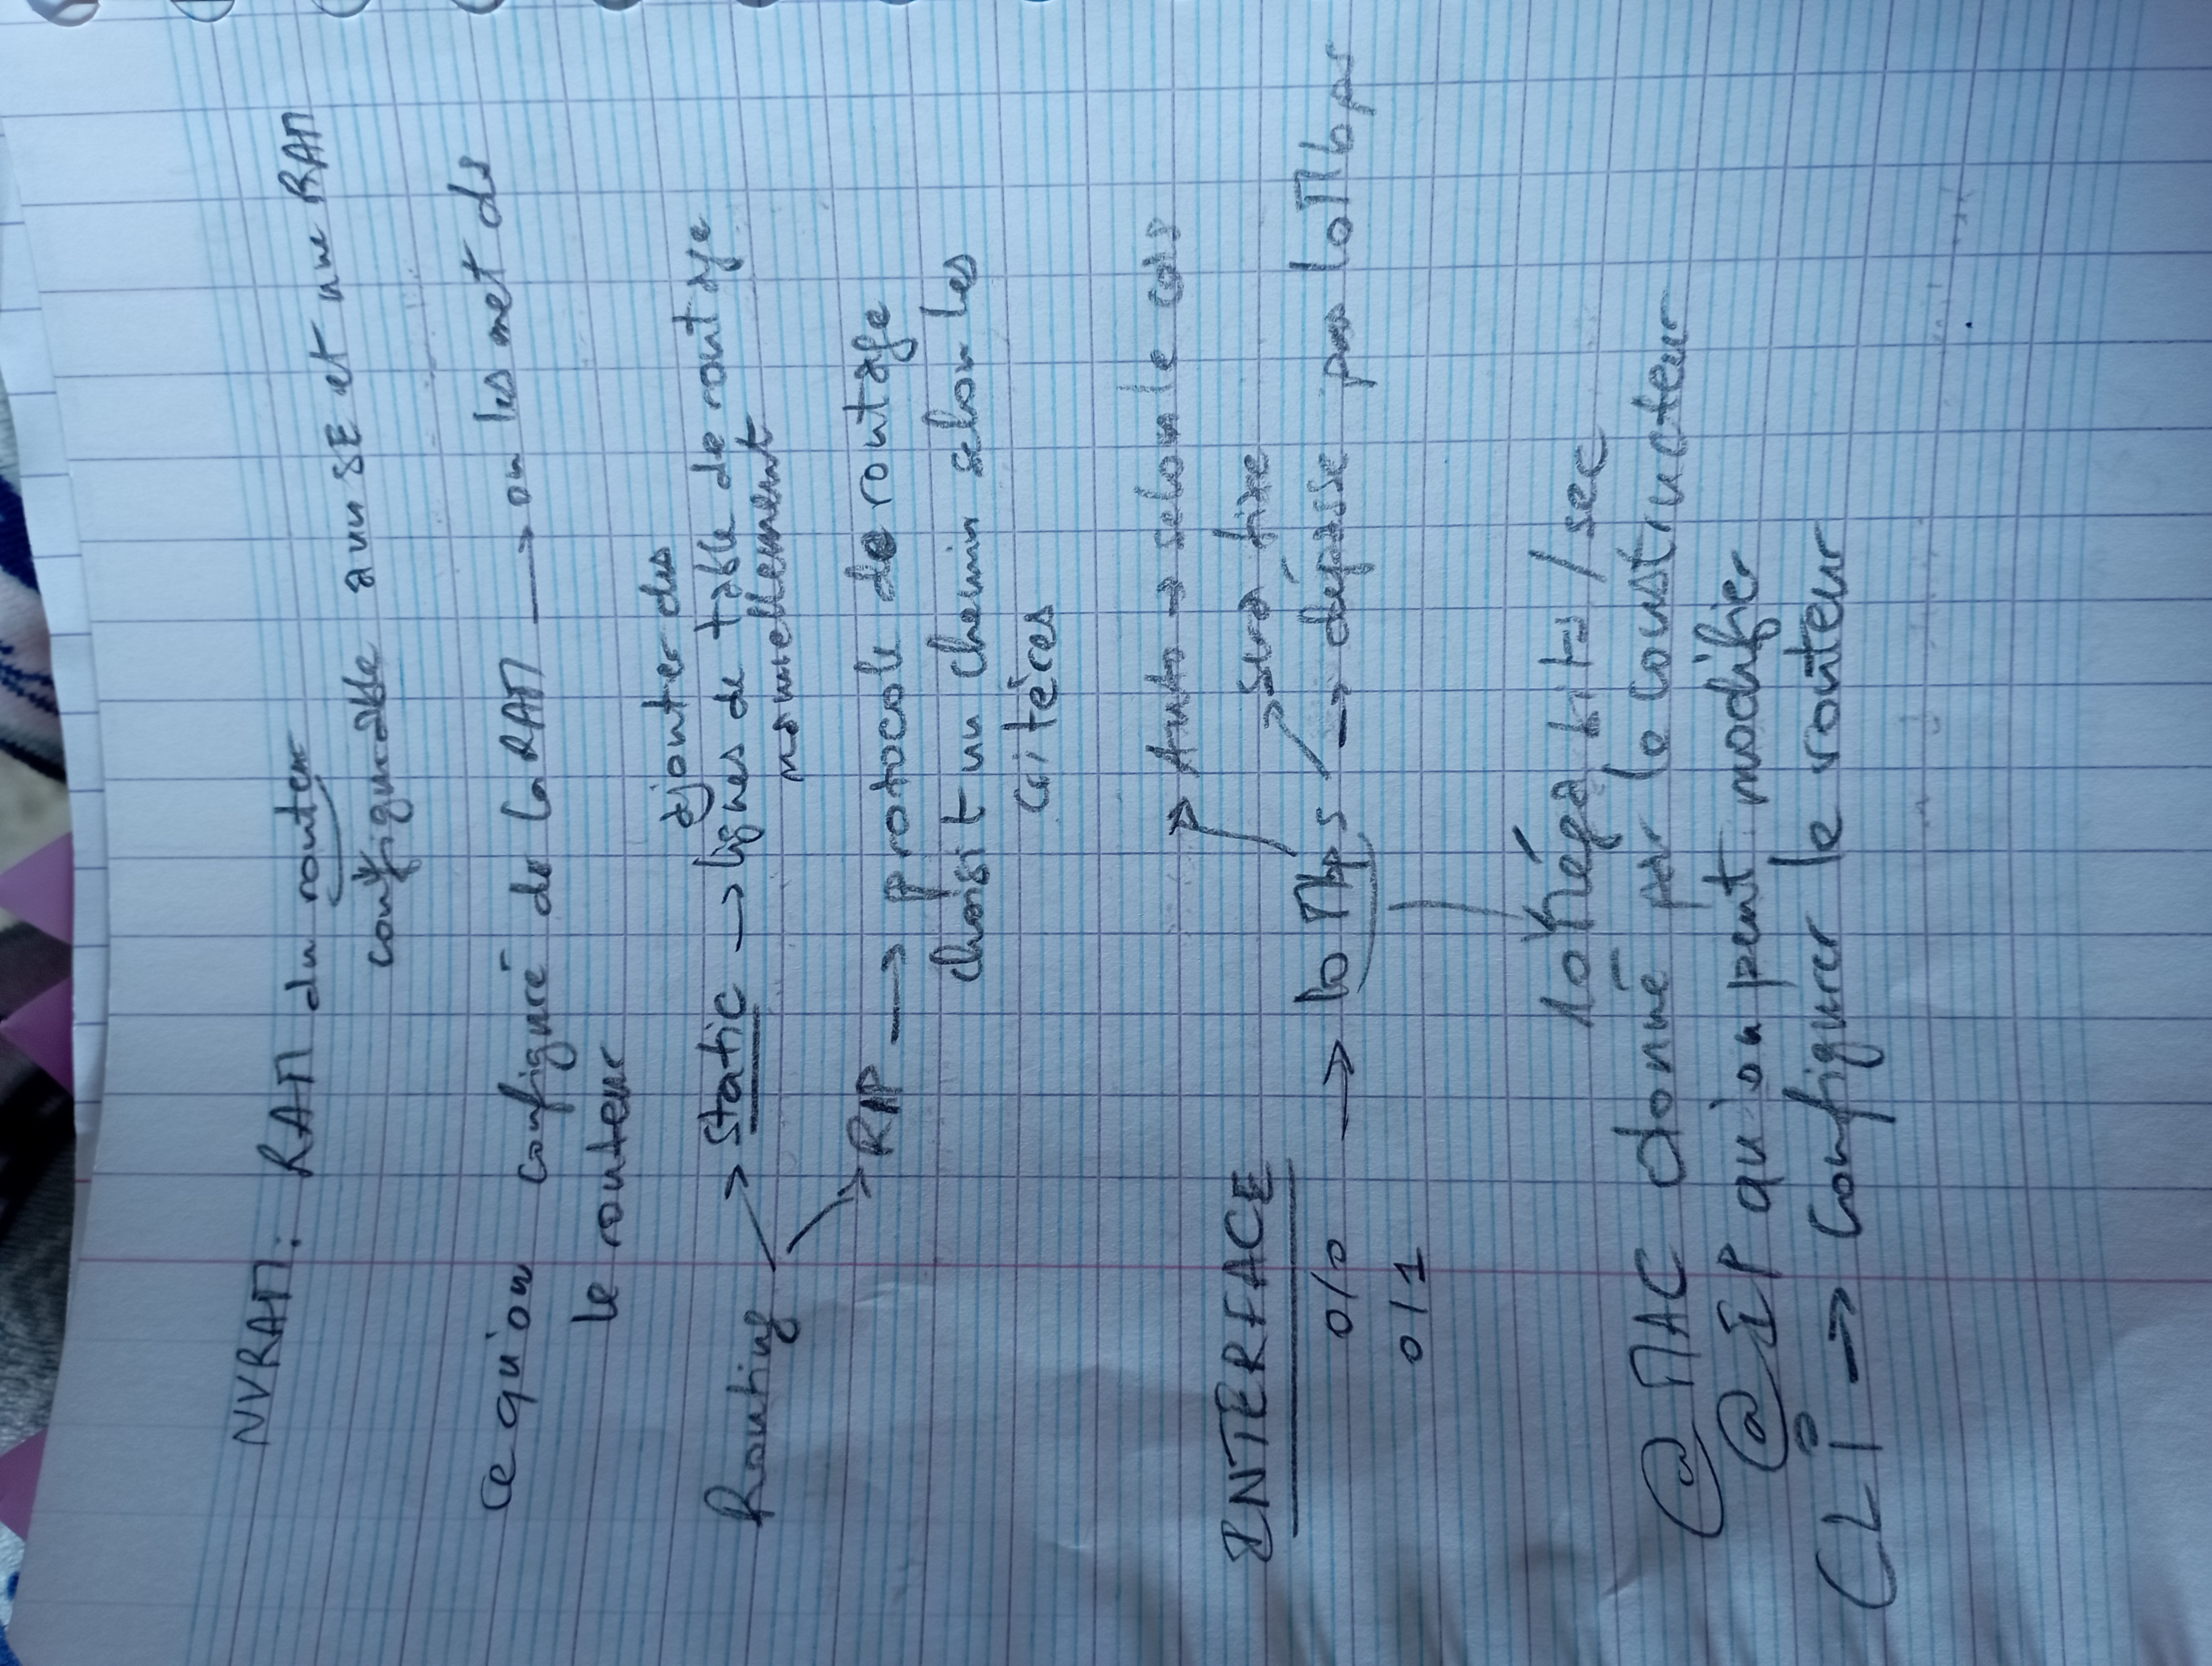 NVRAM: RAM du routeur
configurable a un SE et une RAM
ce qu'on configuré ds la RAM → on les met ds
le routeur
ajouter des
Routing → static → lignes de table de routage
manuellement
→ RIP → protocole de routage
choisit un chemin selon les
critères
→ Auto → selon le cas
INTERFACE
→ sera fixe
0/0 → 10 Mbps → dépasse pas 10Mbps
0/1
10 Méga bits / sec
@ MAC donné par le constructeur
@ IP qu'on peut modifier
CLI → Configurer le routeur